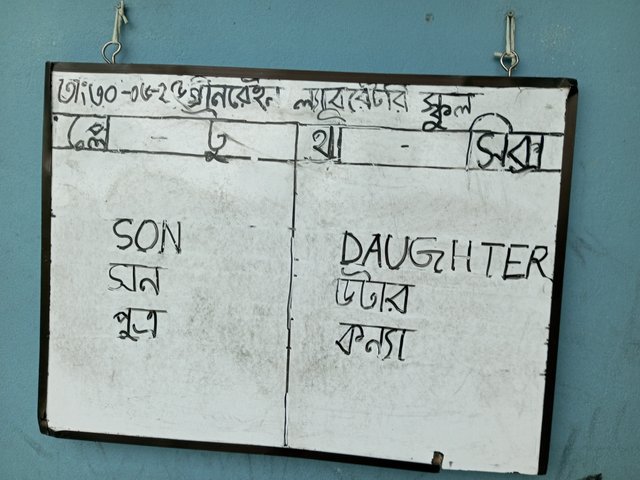 তাং৩০-০৬-২৫ গ্রীনরেইন ল্যাবরেটরি স্কুল
প্লে - টু থ্রী - সিক্স
SON
সান
পুত্র
DAUGHTER
ডটার
কন্যা